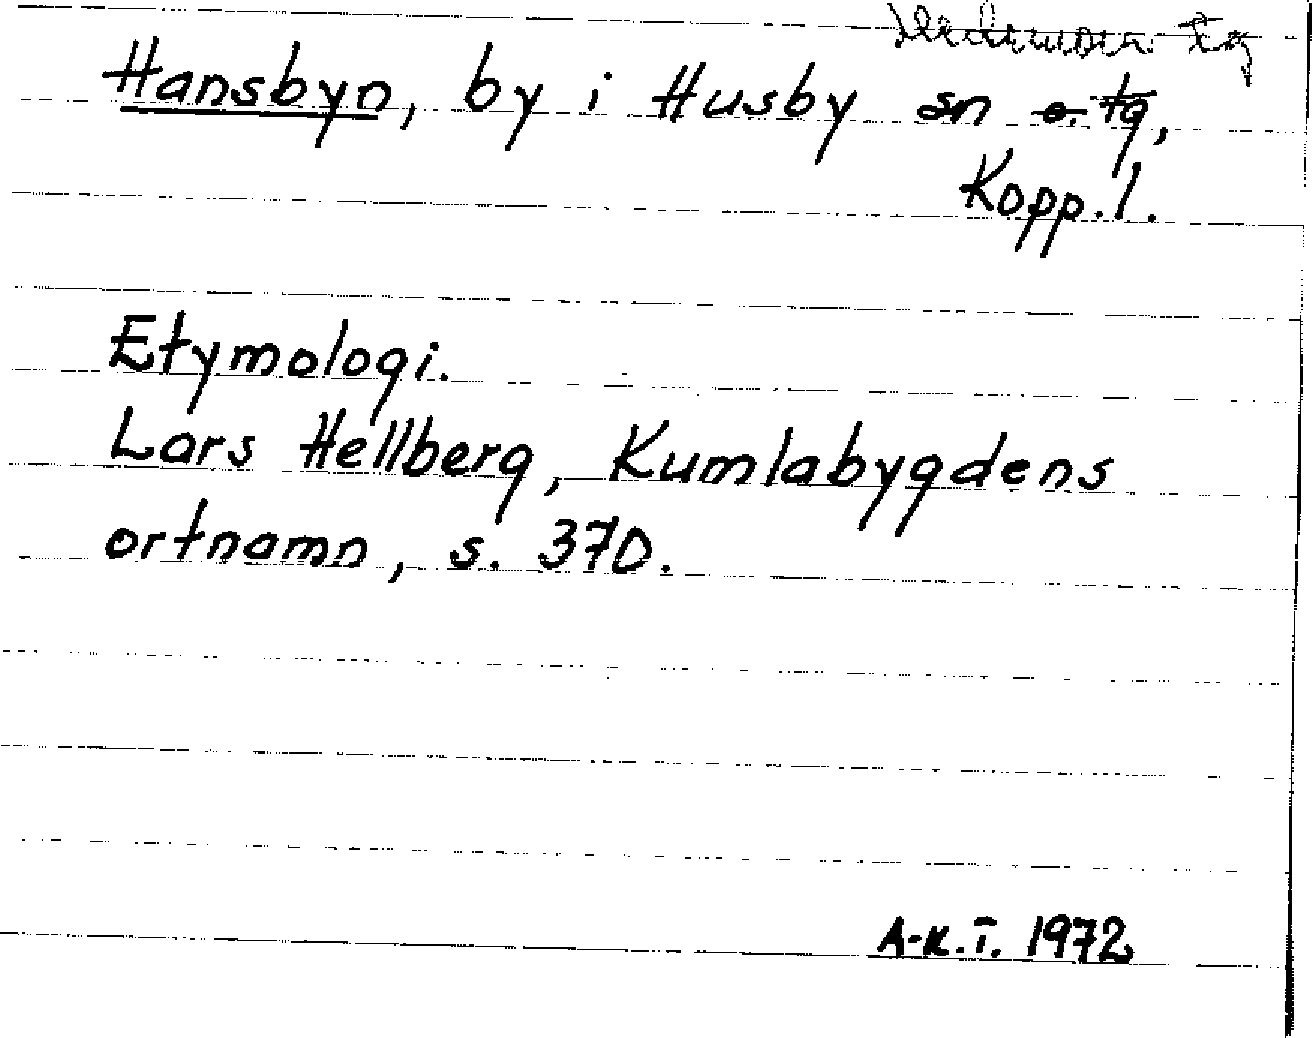 Hedemora tg
Hansbyn, by i Husby sn o. tg,
Kopp.l.
Etymologi.
Lars Hellberg, Kumlabygdens
ortnamn, s. 370.
A-K.T. 1972